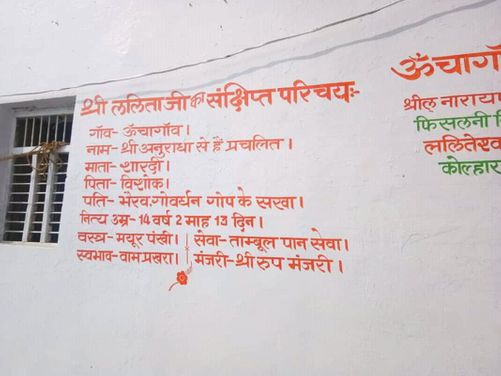 श्री ललिताजी का संक्षिप्त परिचयः-
गाँव- ऊँचागाँव।
नाम- श्री अनुराधा से हैं प्रचलित।
माता- शारदी।
पिता- विशोक।
पति- भैरव,गोवर्धन गोप के सखा।
नित्य उम्र- 14 वर्ष 2 माह 13 दिन।
वस्त्र- मयूर पंखी। सेवा- ताम्बूल पान सेवा।
स्वभाव- वाम प्रखरा। मंजरी- श्री रुप मंजरी।
ऊँचागाँ
श्रील नारायण
फिसलनी
ललितेश्व
कोल्हार